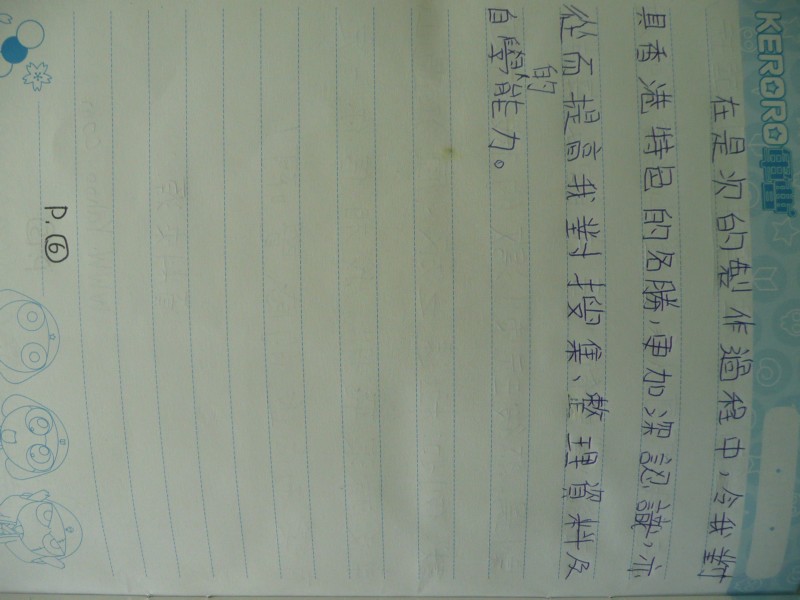 KERORO軍曹
在是次的製作過程中，令我對
具香港特色的名勝，更加深認識，亦
從而提高我對搜集、整理資料及
的
自學能力。
P.⑥